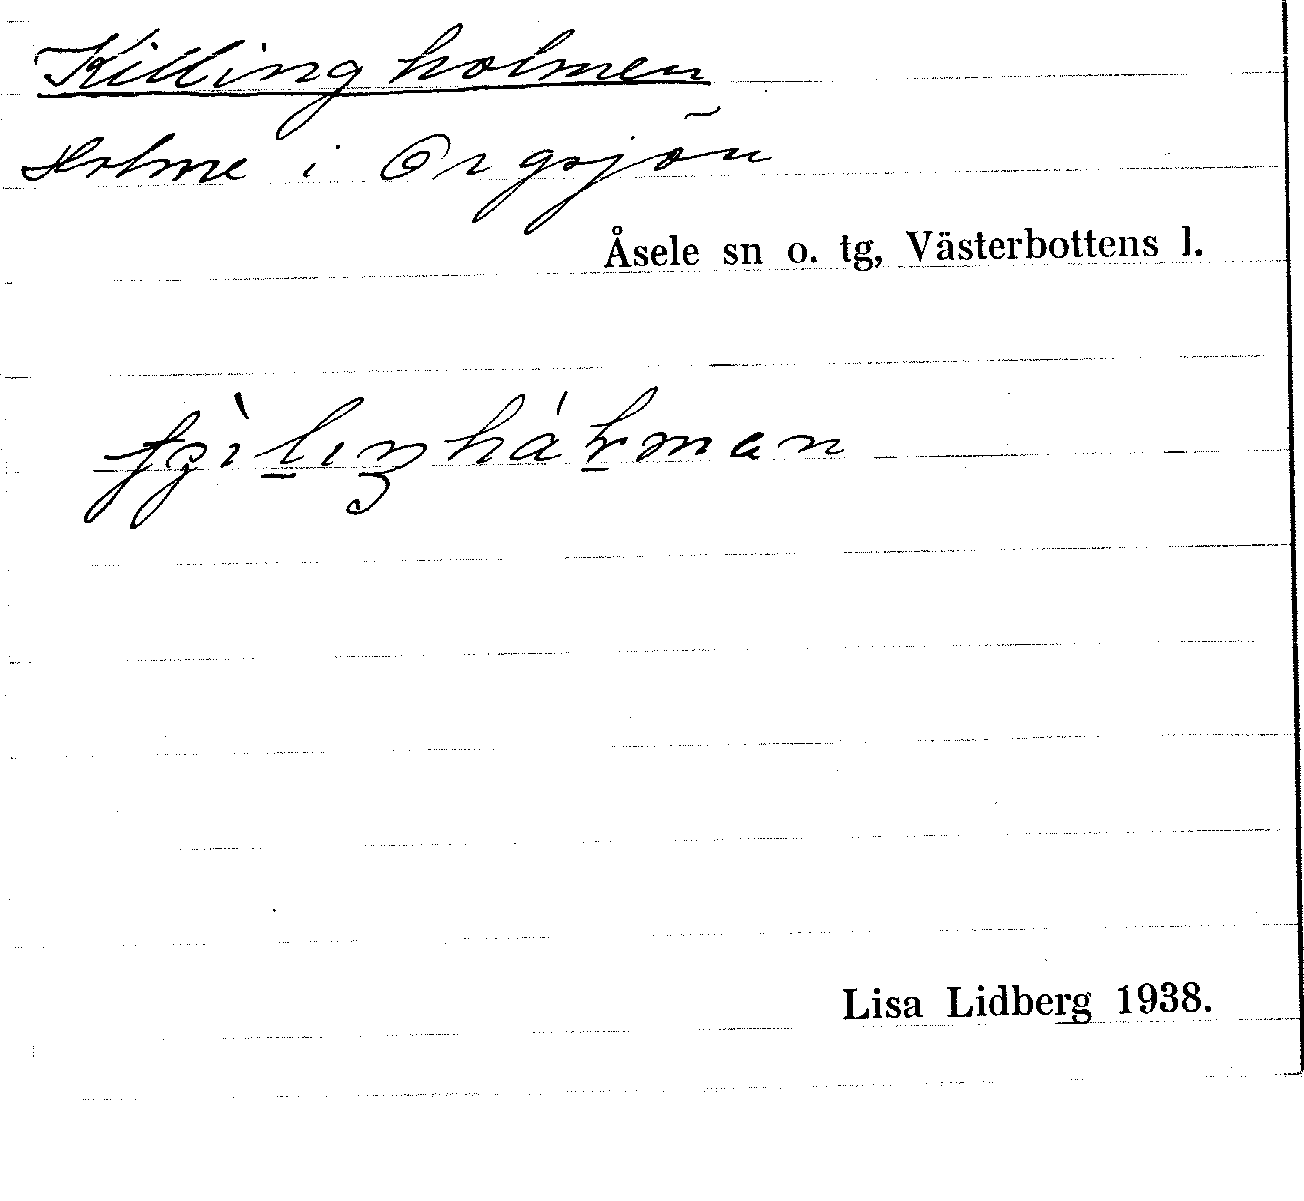 Killingholmen
Holme i Orgsjön
Åsele sn o. tg, Västerbottens l.
Lisa Lidberg 1938.